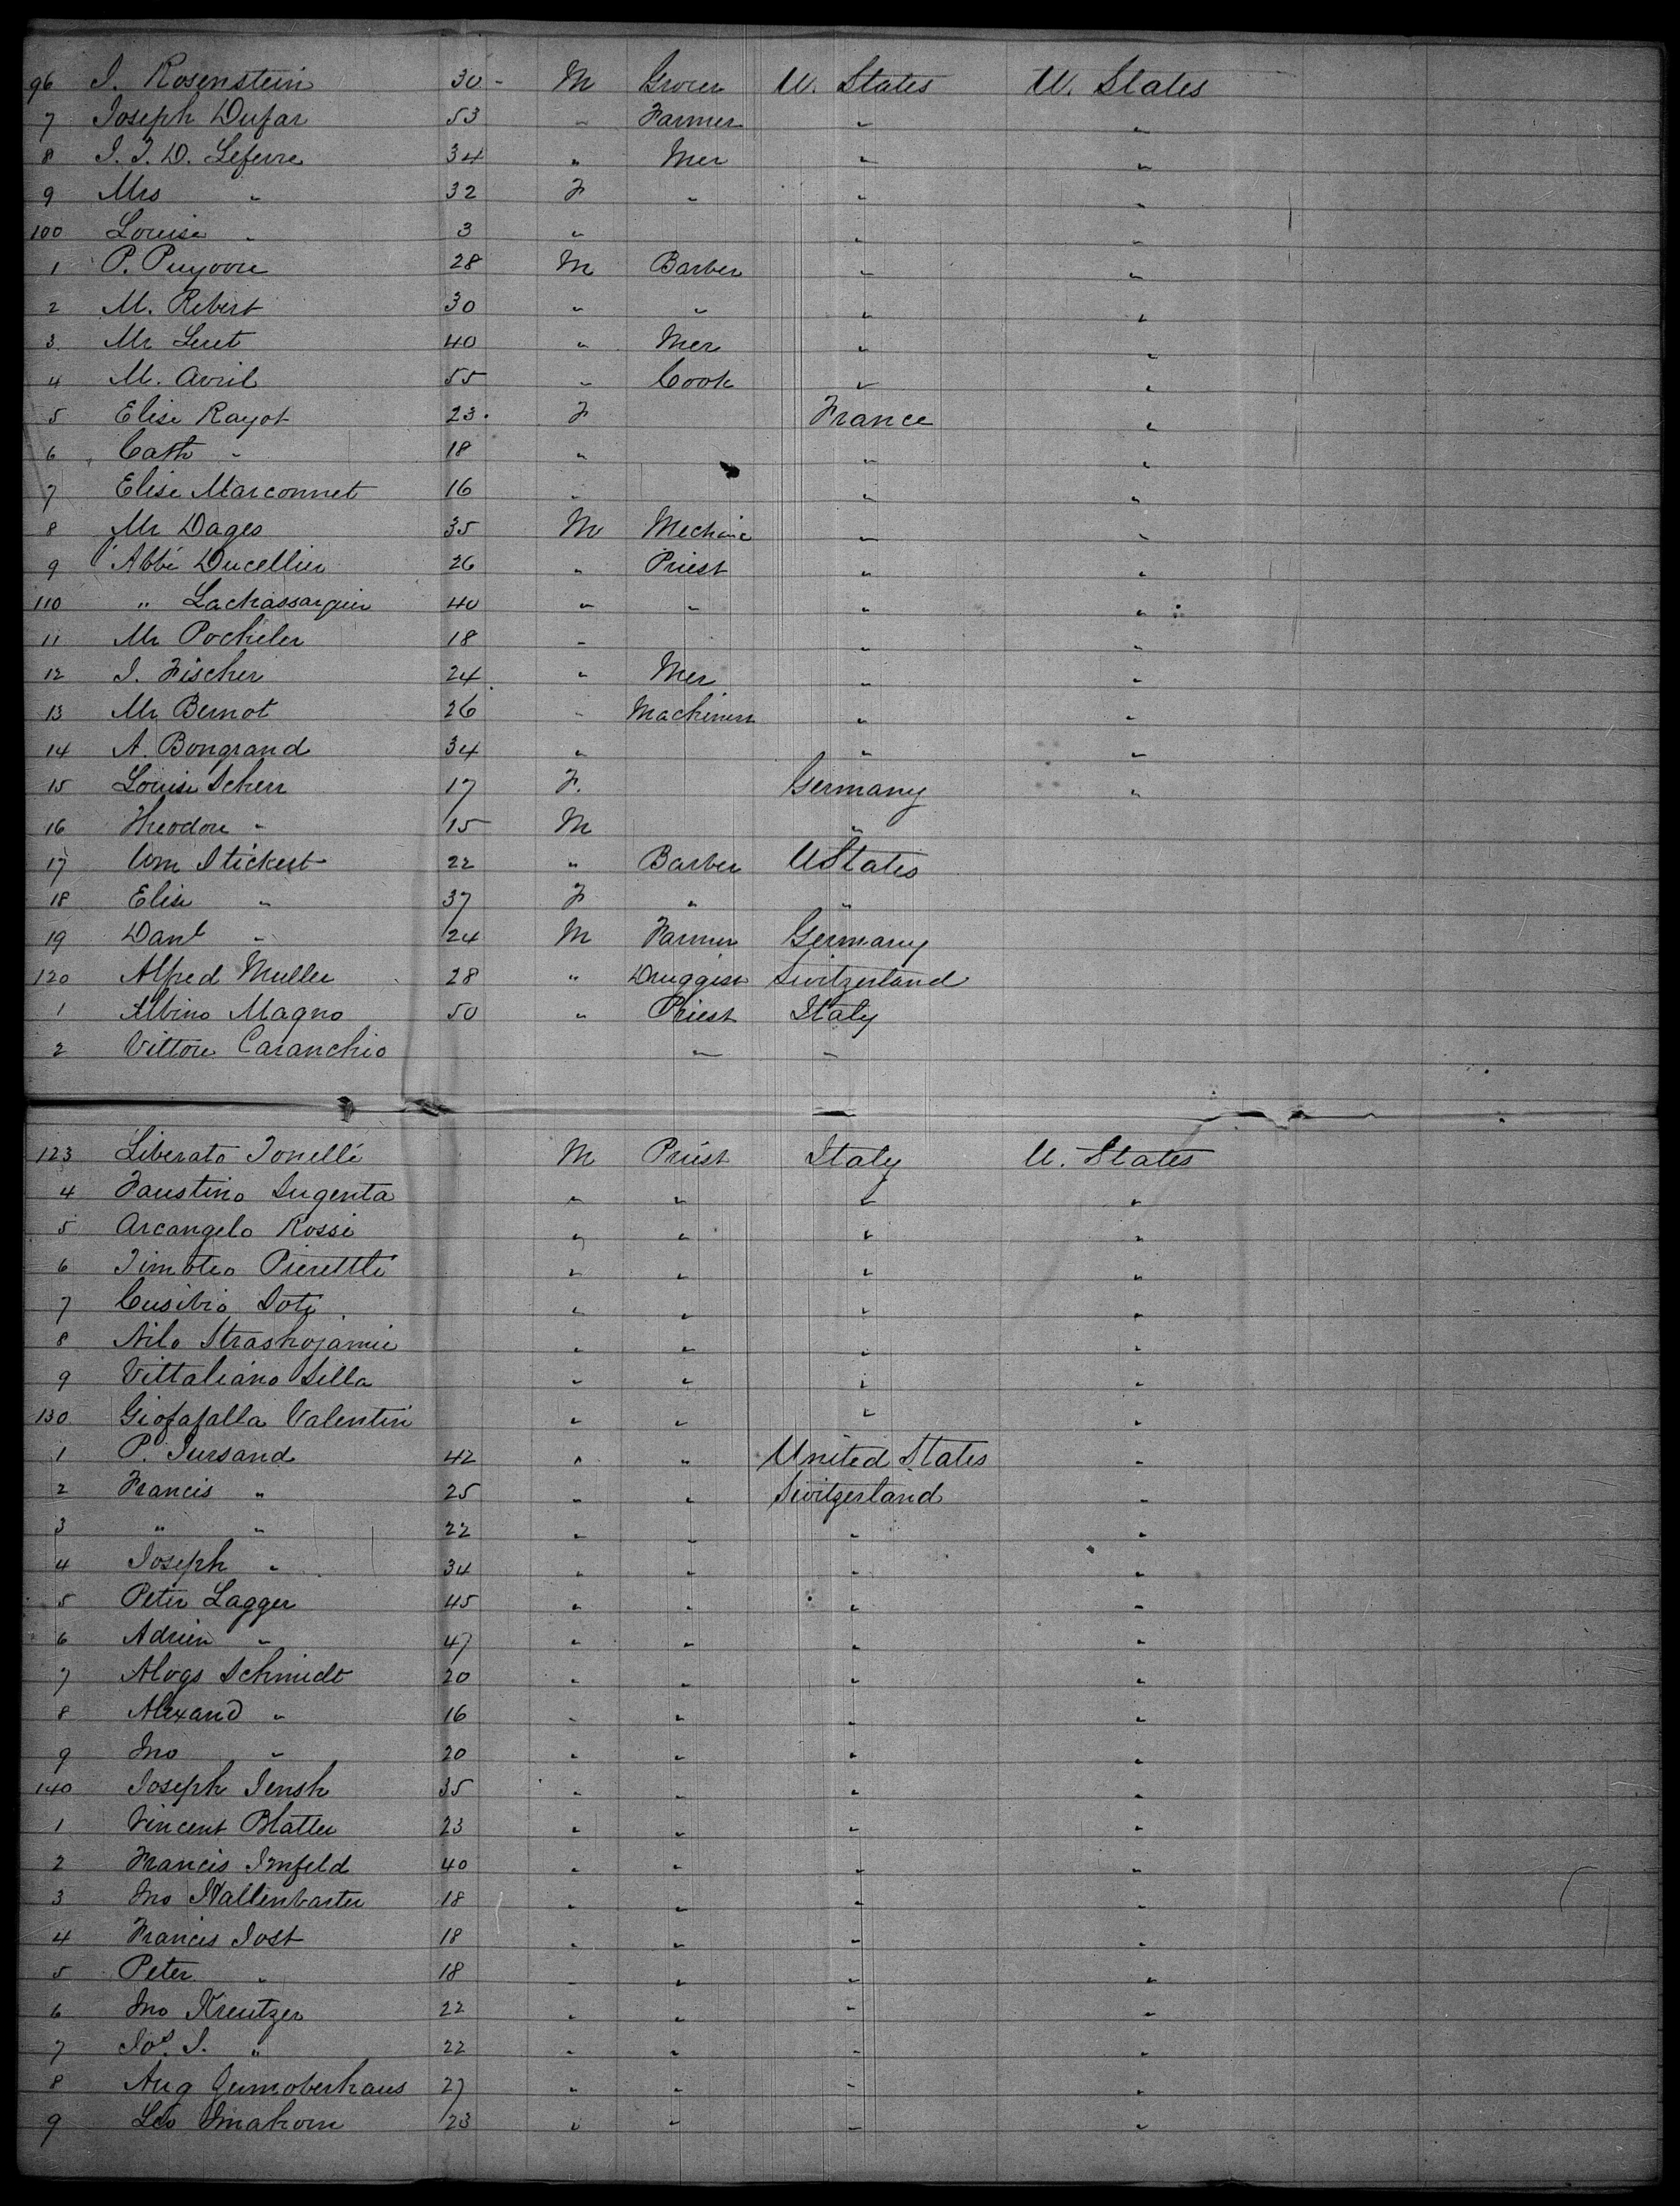 96 J. Rosenstein 30 - M Grocer U. States U. States
7 Joseph Dufar 53 " Farmer " "
8 J. J. D. Lefevre 34 " Mer " "
9 Mrs " 32 F " " "
100 Louise " 3 " " "
1 P. Puyoou 28 M Barber " "
2 M. Rebert 30 " " " "
3 Mr Leut 40 " Mer " "
4 M. Avril 55 " Cook " "
5 Elise Rayot 23. F France "
6 Cath " 18 " " "
7 Elise Marconnet 16 " " "
8 Mr Dages 35 M Mechanic " "
9 Abbé Ducellier 26 " Priest " "
110 " Lachassarguin 40 " " " "
11 Mr Pocheler 18 " " "
12 J. Fischer 24 " Mer " "
13 Mr Bernot 26 " Machiness " "
14 A. Bongrand 34 " " "
15 Louise Scherr 17 F. Germany "
16 Theodore " 15 M "
17 Wm Stickert 22 " Barber UStates
18 Elise " 37 F " "
19 Danl " 24 M Farmer Germany
120 Alfred Muller 28 " Druggist Switzerland
1 Albino Magno 50 " Priest Italy
2 Vittore Caranchio " "
123 Liberato Tonelli M Priest Italy U. States
4 Faustino Sugenta " " " "
5 Arcangelo Rossi " " " "
6 Timoteo Pierettli " " " "
7 Cusibio Doti " " " "
8 Nilo Strashojamie " " " "
9 Vittaliano Silla " " " "
130 Giofafalla Valentin " " " "
1 P. Jursand 42 " " United States "
2 Francis " 25 " " Switzerland "
3 " " 22 " " " "
4 Joseph " 34 " " " "
5 Peter Lagger 45 " " " "
6 Adrien " 47 " " " "
7 Alogs Schmidt 20 " " " "
8 Alexand " 16 " " " "
9 Jno " 20 " " " "
140 Joseph Jensh 35 " " " "
1 Vincent Blatter 23 " " " "
2 Francis Imfeld 40 " " " "
3 Jno Wallenbarter 18 " " " "
4 Francis Jost 18 " " " "
5 Peter " 18 " " " "
6 Jno Kreutzer 22 " " " "
7 Jos. J. " 22 " " " "
8 Aug Zumoberhaus 27 " " " "
9 Leo Imahorn 23 " " " "